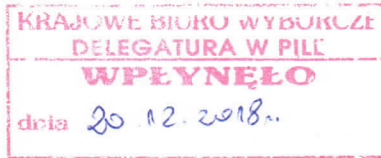 KRAJOWE BIURO WYBORCZE
DELEGATURA W PILE
WPŁYNĘŁO
dnia 20.12.2018r.